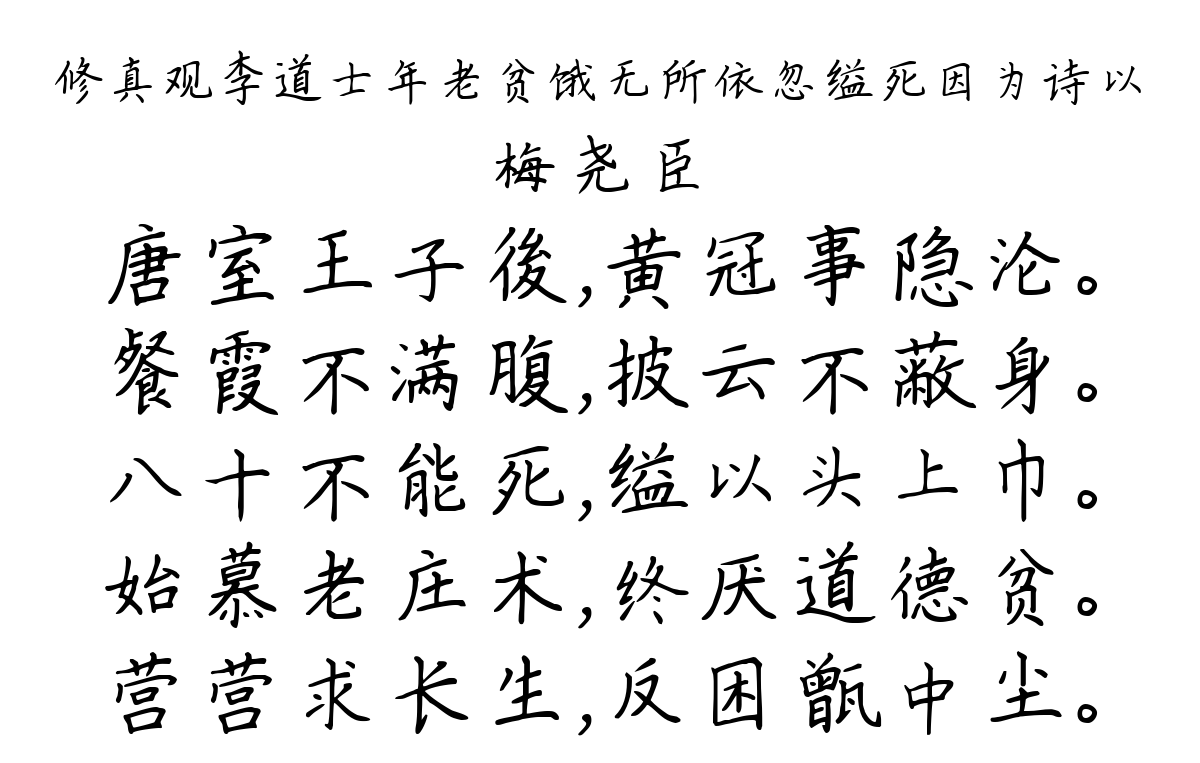 修真观李道士年老贫饿无所依忽缢死因为诗以
梅尧臣
唐室王子後,黄冠事隐沦。
餐霞不满腹,披云不蔽身。
八十不能死,缢以头上巾。
始慕老庄术,终厌道德贫。
营营求长生,反困甑中尘。